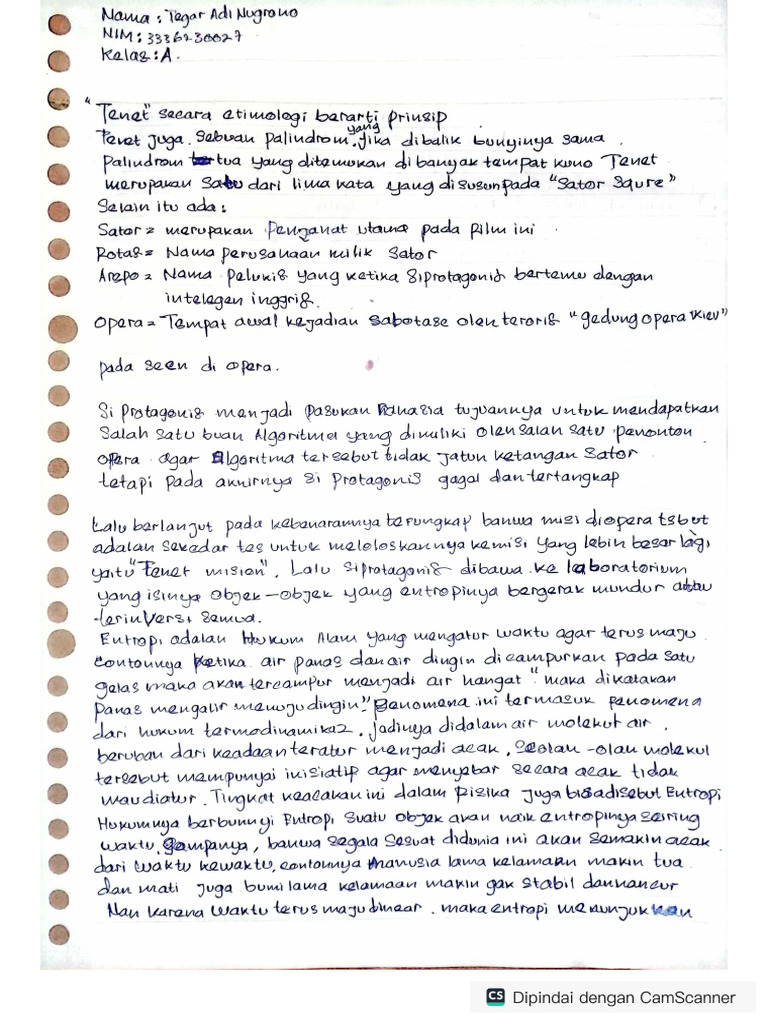 Nama : Tegar Adi Nugroho
NIM : 3336230027
Kelas : A.
"Tenet" secara etimologi berarti prinsip
Tenet juga. Sebuah palindrom yang jika dibalik bunyinya sama.
Palindrom tertua yang ditemukan dibanyak tempat kuno Tenet
merupakan satu dari lima kata yang disusun pada "Sator Squre"
Selain itu ada :
Sator = merupakan Penjahat utama pada film ini
Rotas = Nama perusahaan milik Sator
Arepo = Nama pelukis yang ketika siprotagonis bertemu dengan
intelegen inggris.
Opera = Tempat awal kejadian sabotase oleh teroris "gedung opera Kiev"
pada seen di opera.
Si Protagonis menjadi pasukan Rahasia tujuannya untuk mendapatkan
Salah satu buah Algoritma yang dimiliki oleh salah satu penonton
opera agar Algoritma tersebut tidak jatuh ketangan Sator
tetapi pada akhirnya si Protagonis gagal dan tertangkap
Lalu berlanjut pada kebenarannya terungkap bahwa misi diopera tsbut
adalah sekedar tes untuk meloloskannya kemisi yang lebih besar lagi
yaitu "Tenet mision". Lalu siprotagonis dibawa ke laboratorium
yang isinya objek-objek yang entropinya bergerak mundur atau
terinversi semua.
Entropi adalah Hukum Alam yang mengatur waktu agar terus maju
contohnya ketika air panas dan air dingin dicampurkan pada satu
gelas maka akan tercampur menjadi air hangat "maka dikatakan
panas mengalir menuju dingin" fenomena ini termasuk fenomena
dari hukum termodinamika2. jadinya didalam air molekul air.
berubah dari keadaan teratur menjadi acak, seolah-olah molekul
tersebut mempunyai inisiatif agar menyebar secara acak tidak
mau diatur. Tingkat keacakan ini dalam fisika juga bisa disebut Entropi
Hukumnya berbunnyi Entropi suatu objek akan naik entropinya seiring
waktu. Gampanya, bahwa segala sesuat didunia ini akan semakin acak
dari waktu kewaktu, contohnya Manusia lama kelamaan makin tua
dan mati juga bumi lama kelamaan makin gak stabil dan hancur
Nah karena waktu terus maju linear. maka entropi menunjukkan
CS Dipindai dengan CamScanner